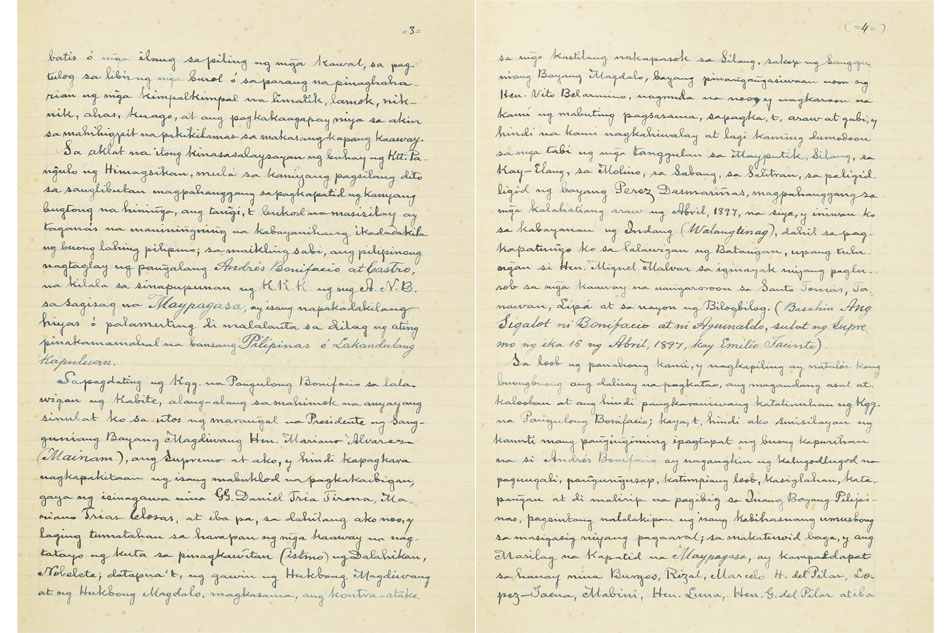 =3=
batis ó mga ilang sa piling ng mga kawal, sa pag-
tulog sa libis ng mga burol ó sa parang na pinaghaha-
rian ng mga kimpalkimpal na limatik, lamok, nik-
nik, ahas, kuago, at ang pagkakaagapay niya sa akin
sa mahihigpit na pakikilamas sa makasangkapang kaaway.
Sa aklat na itong kinasasalaysayan ng buhay ng Ktt. Pa-
ngulo ng Himagsikan, mula sa kaniyang pagsilang dito
sa sanglibutan magpahanggang sa pagkapatid ng kaniyang
bugtong na hininga, ang tangi, t bukod na masisilay ay
tagumas na maniningning na kabayanihang ikadadakila
ng buong lahing pilipino; sa maikling sabi, ang pilipinong
nagtaglay ng pangalang Andrés Bonifacio at Castro,
na kilala sa sinapupunan ng K.K.K. ng mg A. N. B.
sa sagisag na Maypagasa, ay isang napakadakilang
hiyas ó palamuting di malalanta sa dilag ng ating
pinakamamahal na bansang Pilipinas ó Lakandulang
Kapuluan.
Sa pagdating ng Kgg. na Pangulong Bonifacio sa lala-
wigan ng Kabite, alang-alang sa mahimok na anyayang
sinulat ko sa utos ng marangal na Presidente ng Sang-
guniang Bayang Magdiwang Hen. Mariano Alvarez
(Mainam), ang Supremo at ako, y hindi kapagkara
nagkapakitaan ng isang mabuklod na pagkakaibigan,
gaya ng isinagawa nina GG. Daniel Tria Tirona, Ma-
riano Trias Closas, at iba pa, sa dahilang ako noo, y
laging tumatahan sa harapan ng mga kaaway na nag-
tatayo ng kuta sa pinagkawitan (istmo) ng Dalahikan,
Nobelete; datapua't, ng gawin ng Hukbong Magdiwang
at ng Hukbong Magdalo, magkasama, ang kontra-atake
(=4=)
sa mga kastilang nakapasok sa Silang, sakop ng Sanggu-
niang Bayang Magdalo, bayang pinangangasiwaan noon ng
Hen. Vito Belarmino, nagmula na noo, y nagkaroon na
kami ng mabuting pagsasama, sapagka, t, araw at gabi, y
hindi na kami nagkahiwalay at lagi kaming dumodoon
sa mga tabi ng mga tanggulan sa Mayputik, Silang, sa
Kay-Elang, sa Molino, sa Sabang, sa Salitran, sa paligid
ligid ng bayang Perez Dasmariñas, magpahanggang sa
mga kalahatiang araw ng Abril, 1897, na siya, y iniwan ko
sa kabayanan ng Indang (Walangtinag), dahil sa pag-
kapatungo ko sa lalawigan ng Batangan, upang tulu-
ngan si Hen. Miguel Malvar sa iginayak niyang paglu-
sob sa mga kaaway na nangaroroon sa Santo Tomás, Ta-
nawan, Lipá at sa nayon ng Bilogbilog. (Basahin Ang
Sigalot ni Bonifacio at ni Aguinaldo, sulat ng Supre
mo ng ika 16 ng Abril, 1897, kay Emilio Jacinto).
Sa loob ng panahong kami, y nagkapiling ay natalós kong
buongbuong ang dalisay na pagkatao, ang magandang asal at
kalooban at ang hindi pangkaraniwang katalinuhan ng Kgg.
na Pangulong Bonifacio; kaya, t, hindi ako sinisilayan ng
kaunti mang pangingiming ipagtapat ng buong kapurihan
na si Andrés Bonifacio ay nagangkin ng kalugodlugod na
paguugali, pangungusap, katimpiang loob, kasiglahan, kata-
pangan at di malirip na pagibig sa Inang Bayang Pilipi-
nas, pagsintang nalalakipan ng isang kabihasnang umusbong
sa masigasig niyang pagaaral; sa makatuwid baga, y ang
Marilag na Kapatid na Maypagasa, ay kampaldapat
sa hanay nina Burgos, Rizal, Marcelo H. del Pilar, Lo-
pez-Jaena, Mabini, Hen. Luna, Hen. G. del Pilar at iba